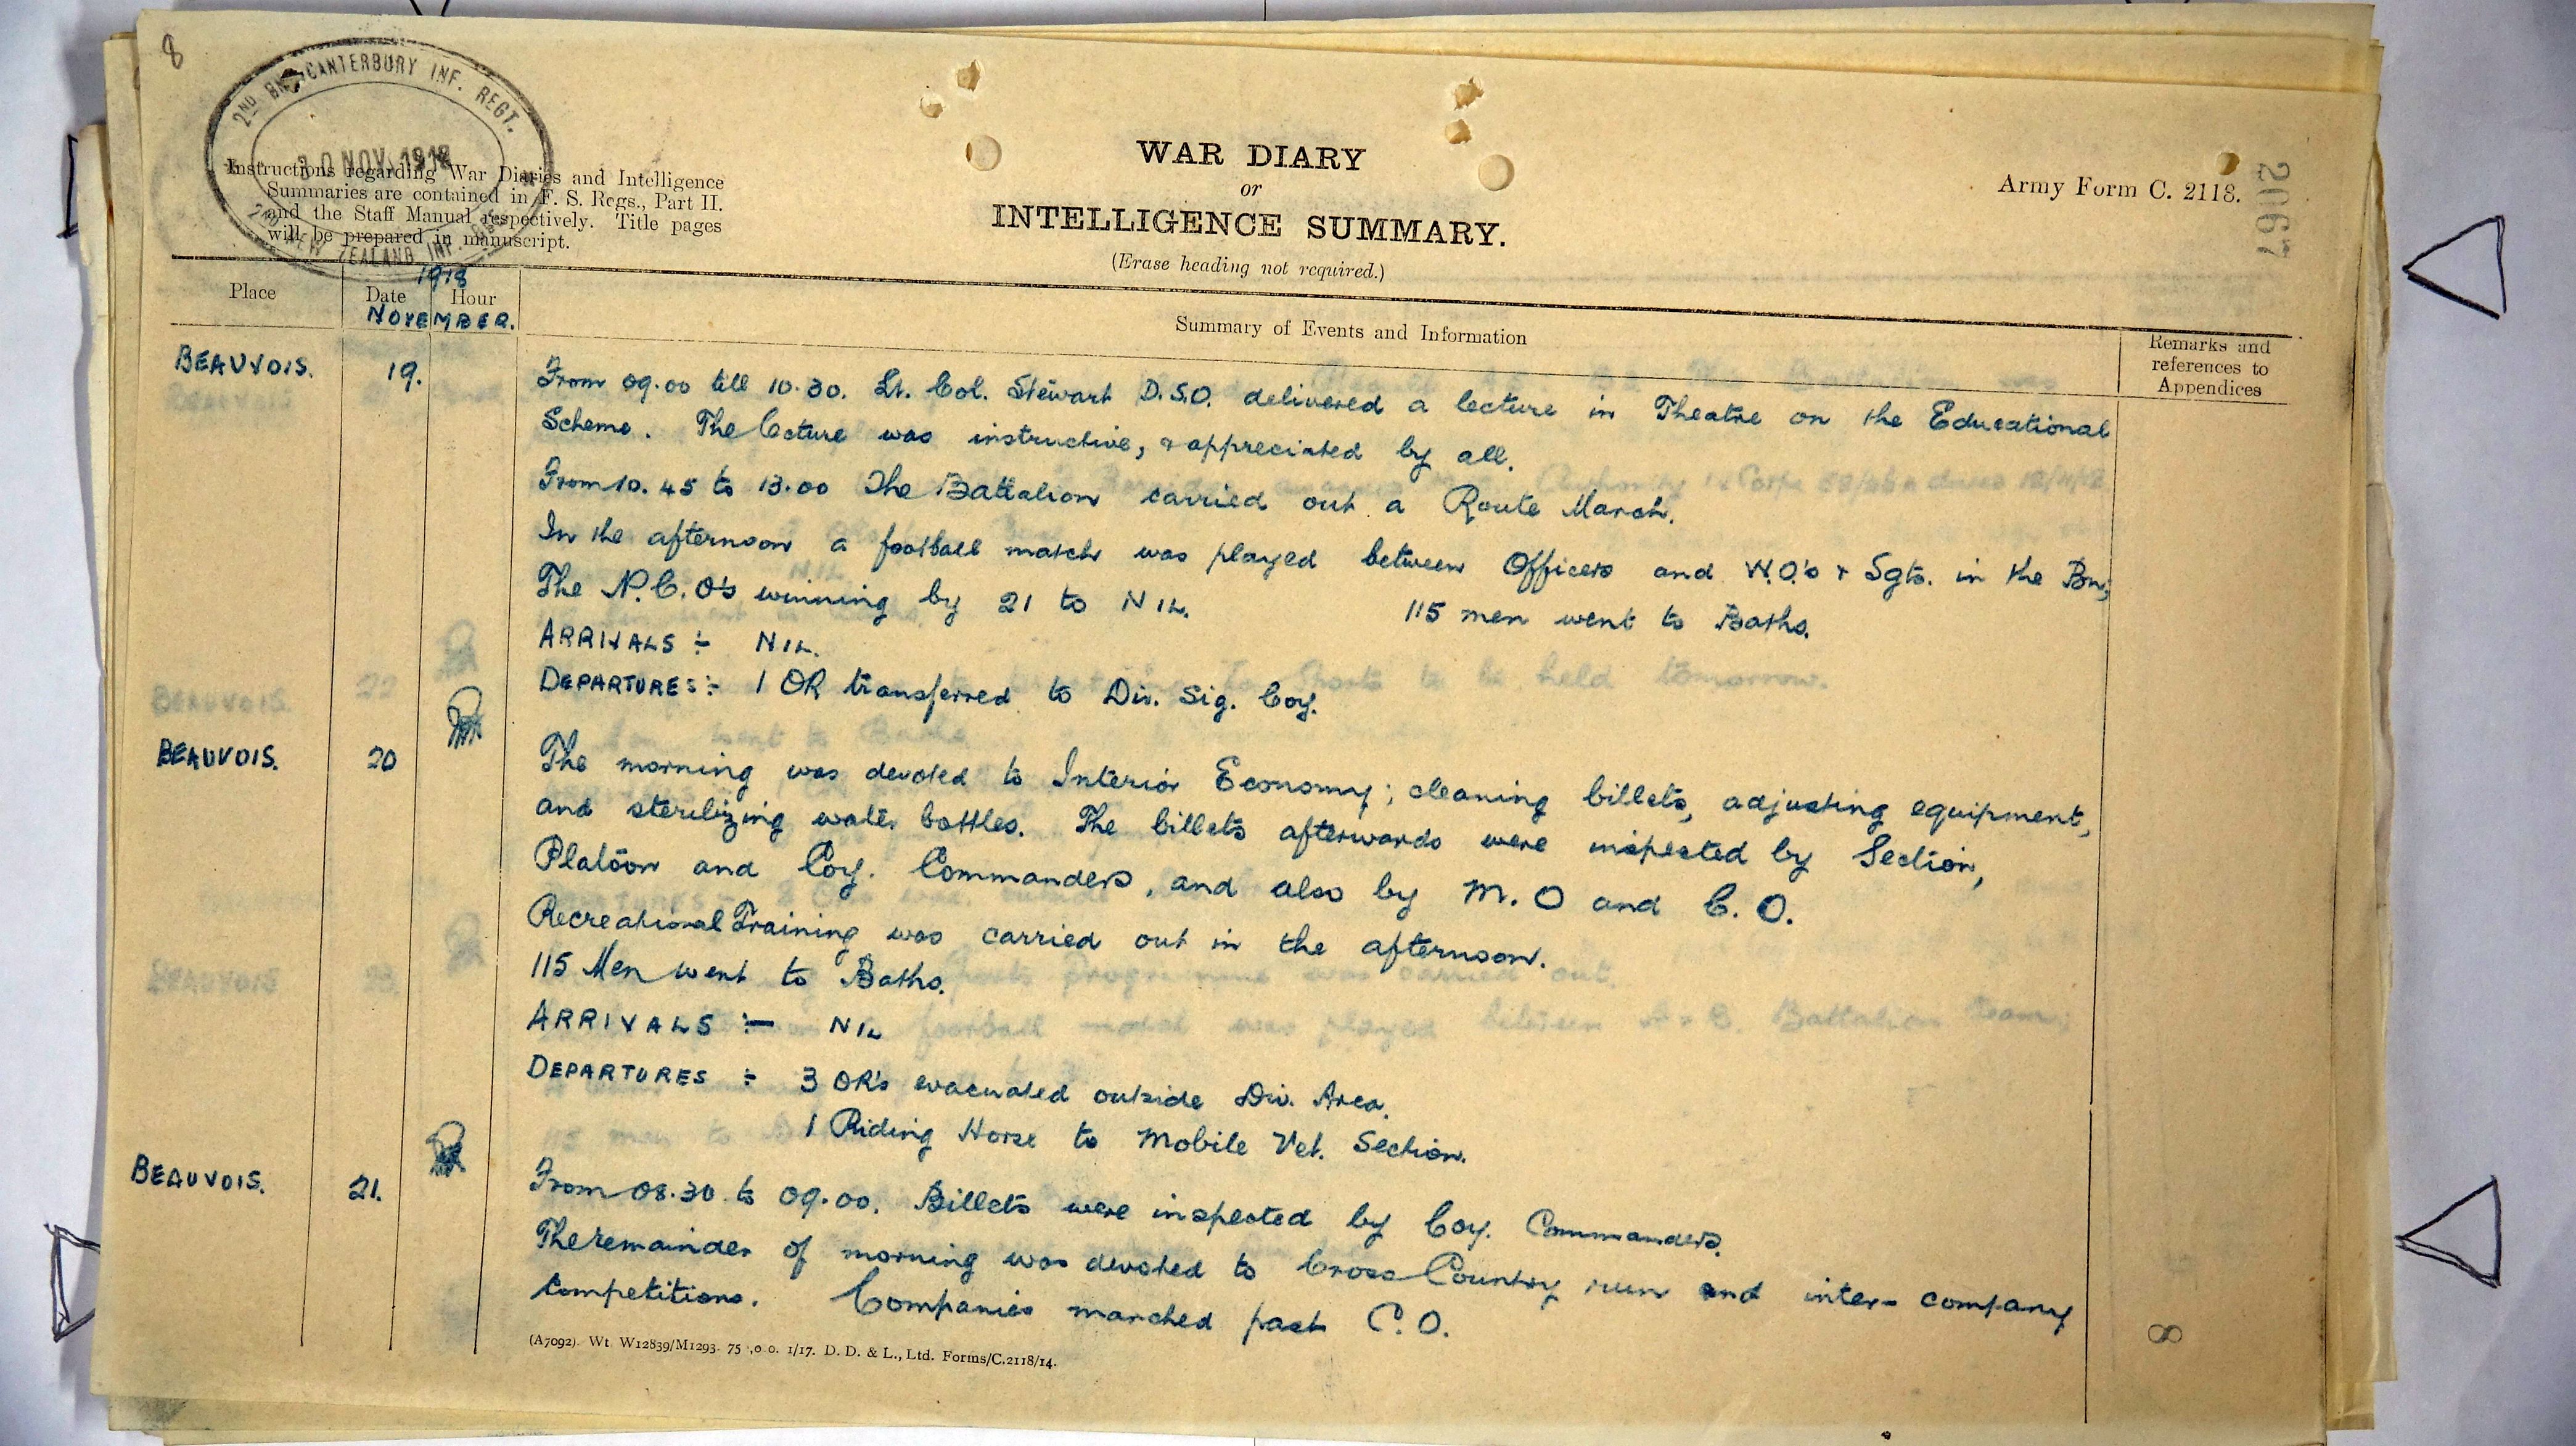 8
2ND BN. CANTERBURY INF. REGT.
30 NOV 1918
NEW ZEALAND INF.
Instructions regarding War Diaries and Intelligence
Summaries are contained in F. S. Regs., Part II.
and the Staff Manual respectively. Title pages
will be prepared in manuscript.
WAR DIARY
or
INTELLIGENCE SUMMARY.
(Erase heading not required.)
Army Form C. 2118.
2067
1918
Place
Date
Hour
NOVEMBER.
Summary of Events and Information
Remarks and
references to
Appendices
BEAUVOIS. 19. From 09.00 till 10.30. Lt. Col. Stewart D.S.O. delivered a lecture in Theatre on the Educational
Scheme. The lecture was instructive, & appreciated by all.
From 10.45 to 13.00 The Battalion carried out a Route March.
In the afternoon a football match was played between Officers and W.O.'s & Sgts. in the Bn;
The N.C.O's winning by 21 to NIL. 115 men went to Baths.
ARRIVALS :- NIL.
DEPARTURES :- 1 OR transferred to Div. Sig. Coy.
BEAUVOIS. 20 The morning was devoted to Interior Economy; cleaning billets, adjusting equipment,
and sterilizing water bottles. The billets afterwards were inspected by Section,
Platoon and Coy. Commanders, and also by M.O and C.O.
Recreational Training was carried out in the afternoon.
115 Men went to Baths.
ARRIVALS :- NIL
DEPARTURES :- 3 OR's evacuated outside Div. Area.
1 Riding Horse to Mobile Vet. Section.
BEAUVOIS. 21. From 08.30 to 09.00. Billets were inspected by Coy. Commanders.
The remainder of morning was devoted to Cross Country run and inter-company
competitions. Companies marched past C.O.
(A7092). Wt. W12839/M1293. 75 ,0 0. 1/17. D. D. & L., Ltd. Forms/C.2118/14.
8